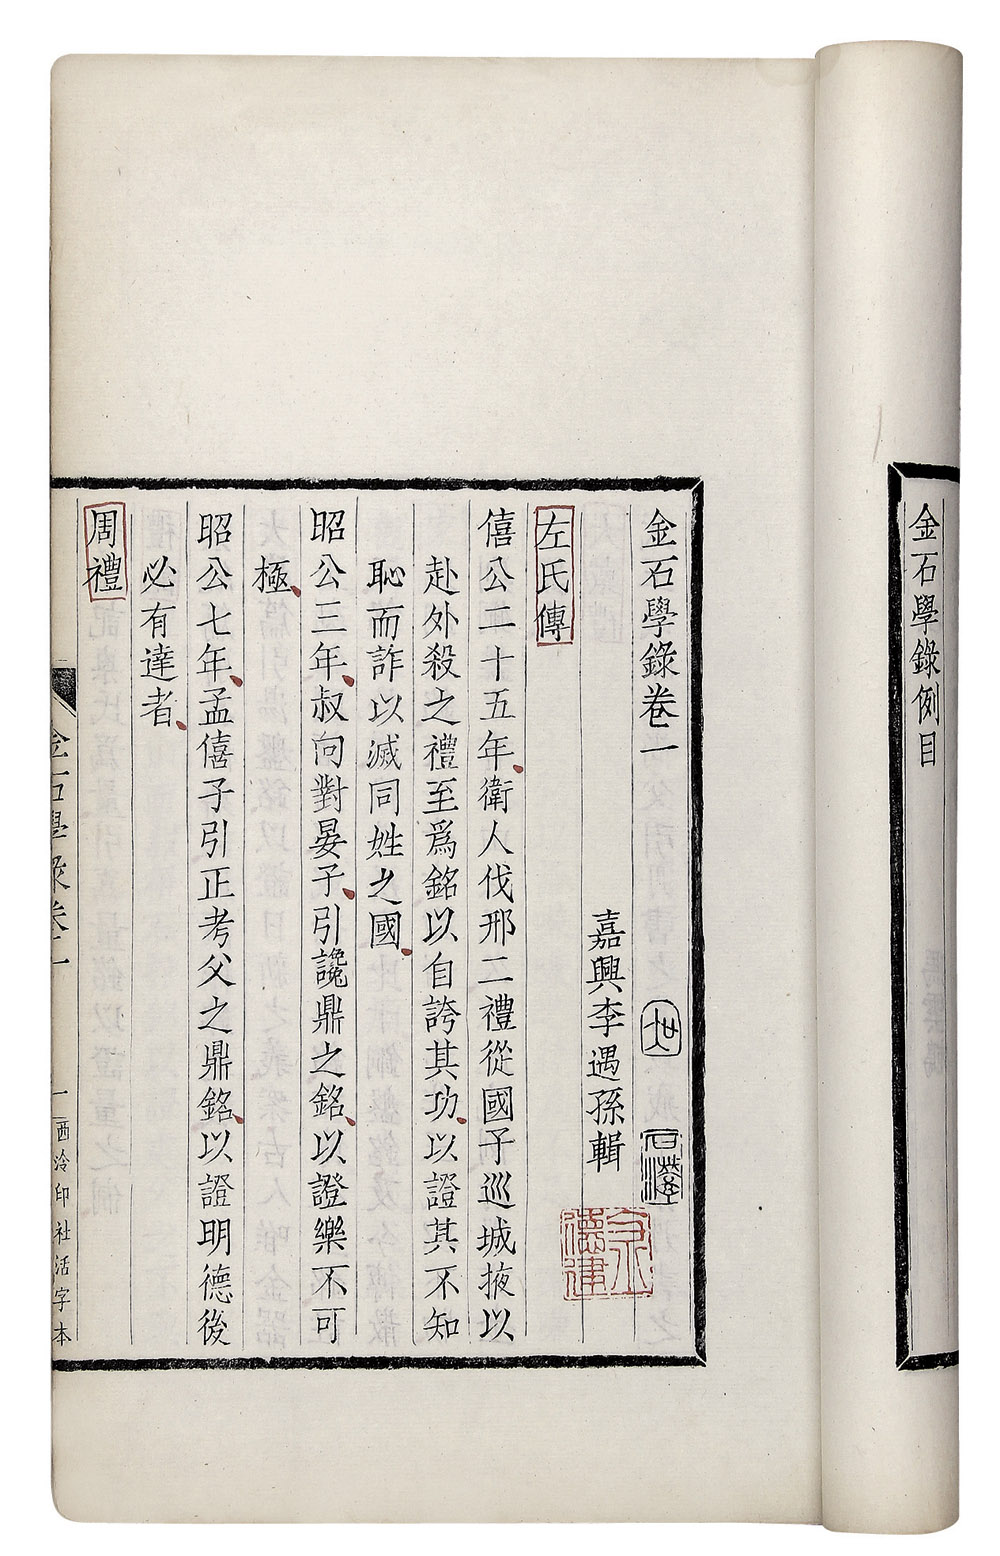 金石學錄例目
金石學錄卷一
嘉興李遇孫輯
左氏傳
僖公二十五年衛人伐邢二禮從國子巡城掖以
赴外殺之禮至爲銘以自誇其功以證其不知
恥而詐以滅同姓之國
昭公三年叔向對晏子引讒鼎之銘以證樂不可
極
昭公七年孟僖子引正考父之鼎銘以證明德後
必有達者
周禮
金石學錄卷一
一
西泠印社活字本